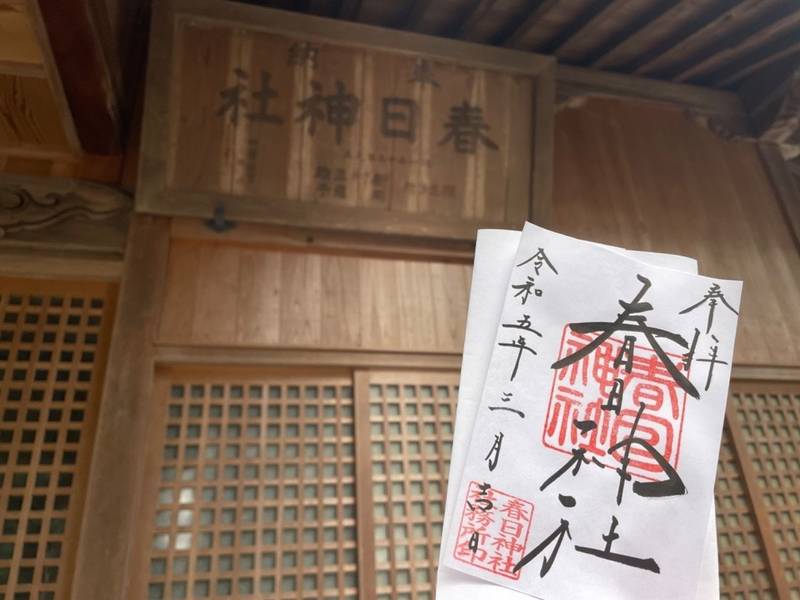 奉
納
春日神社
奉拝
春日神社
令和五年三月吉日
春日神社
春日神社
社務所印